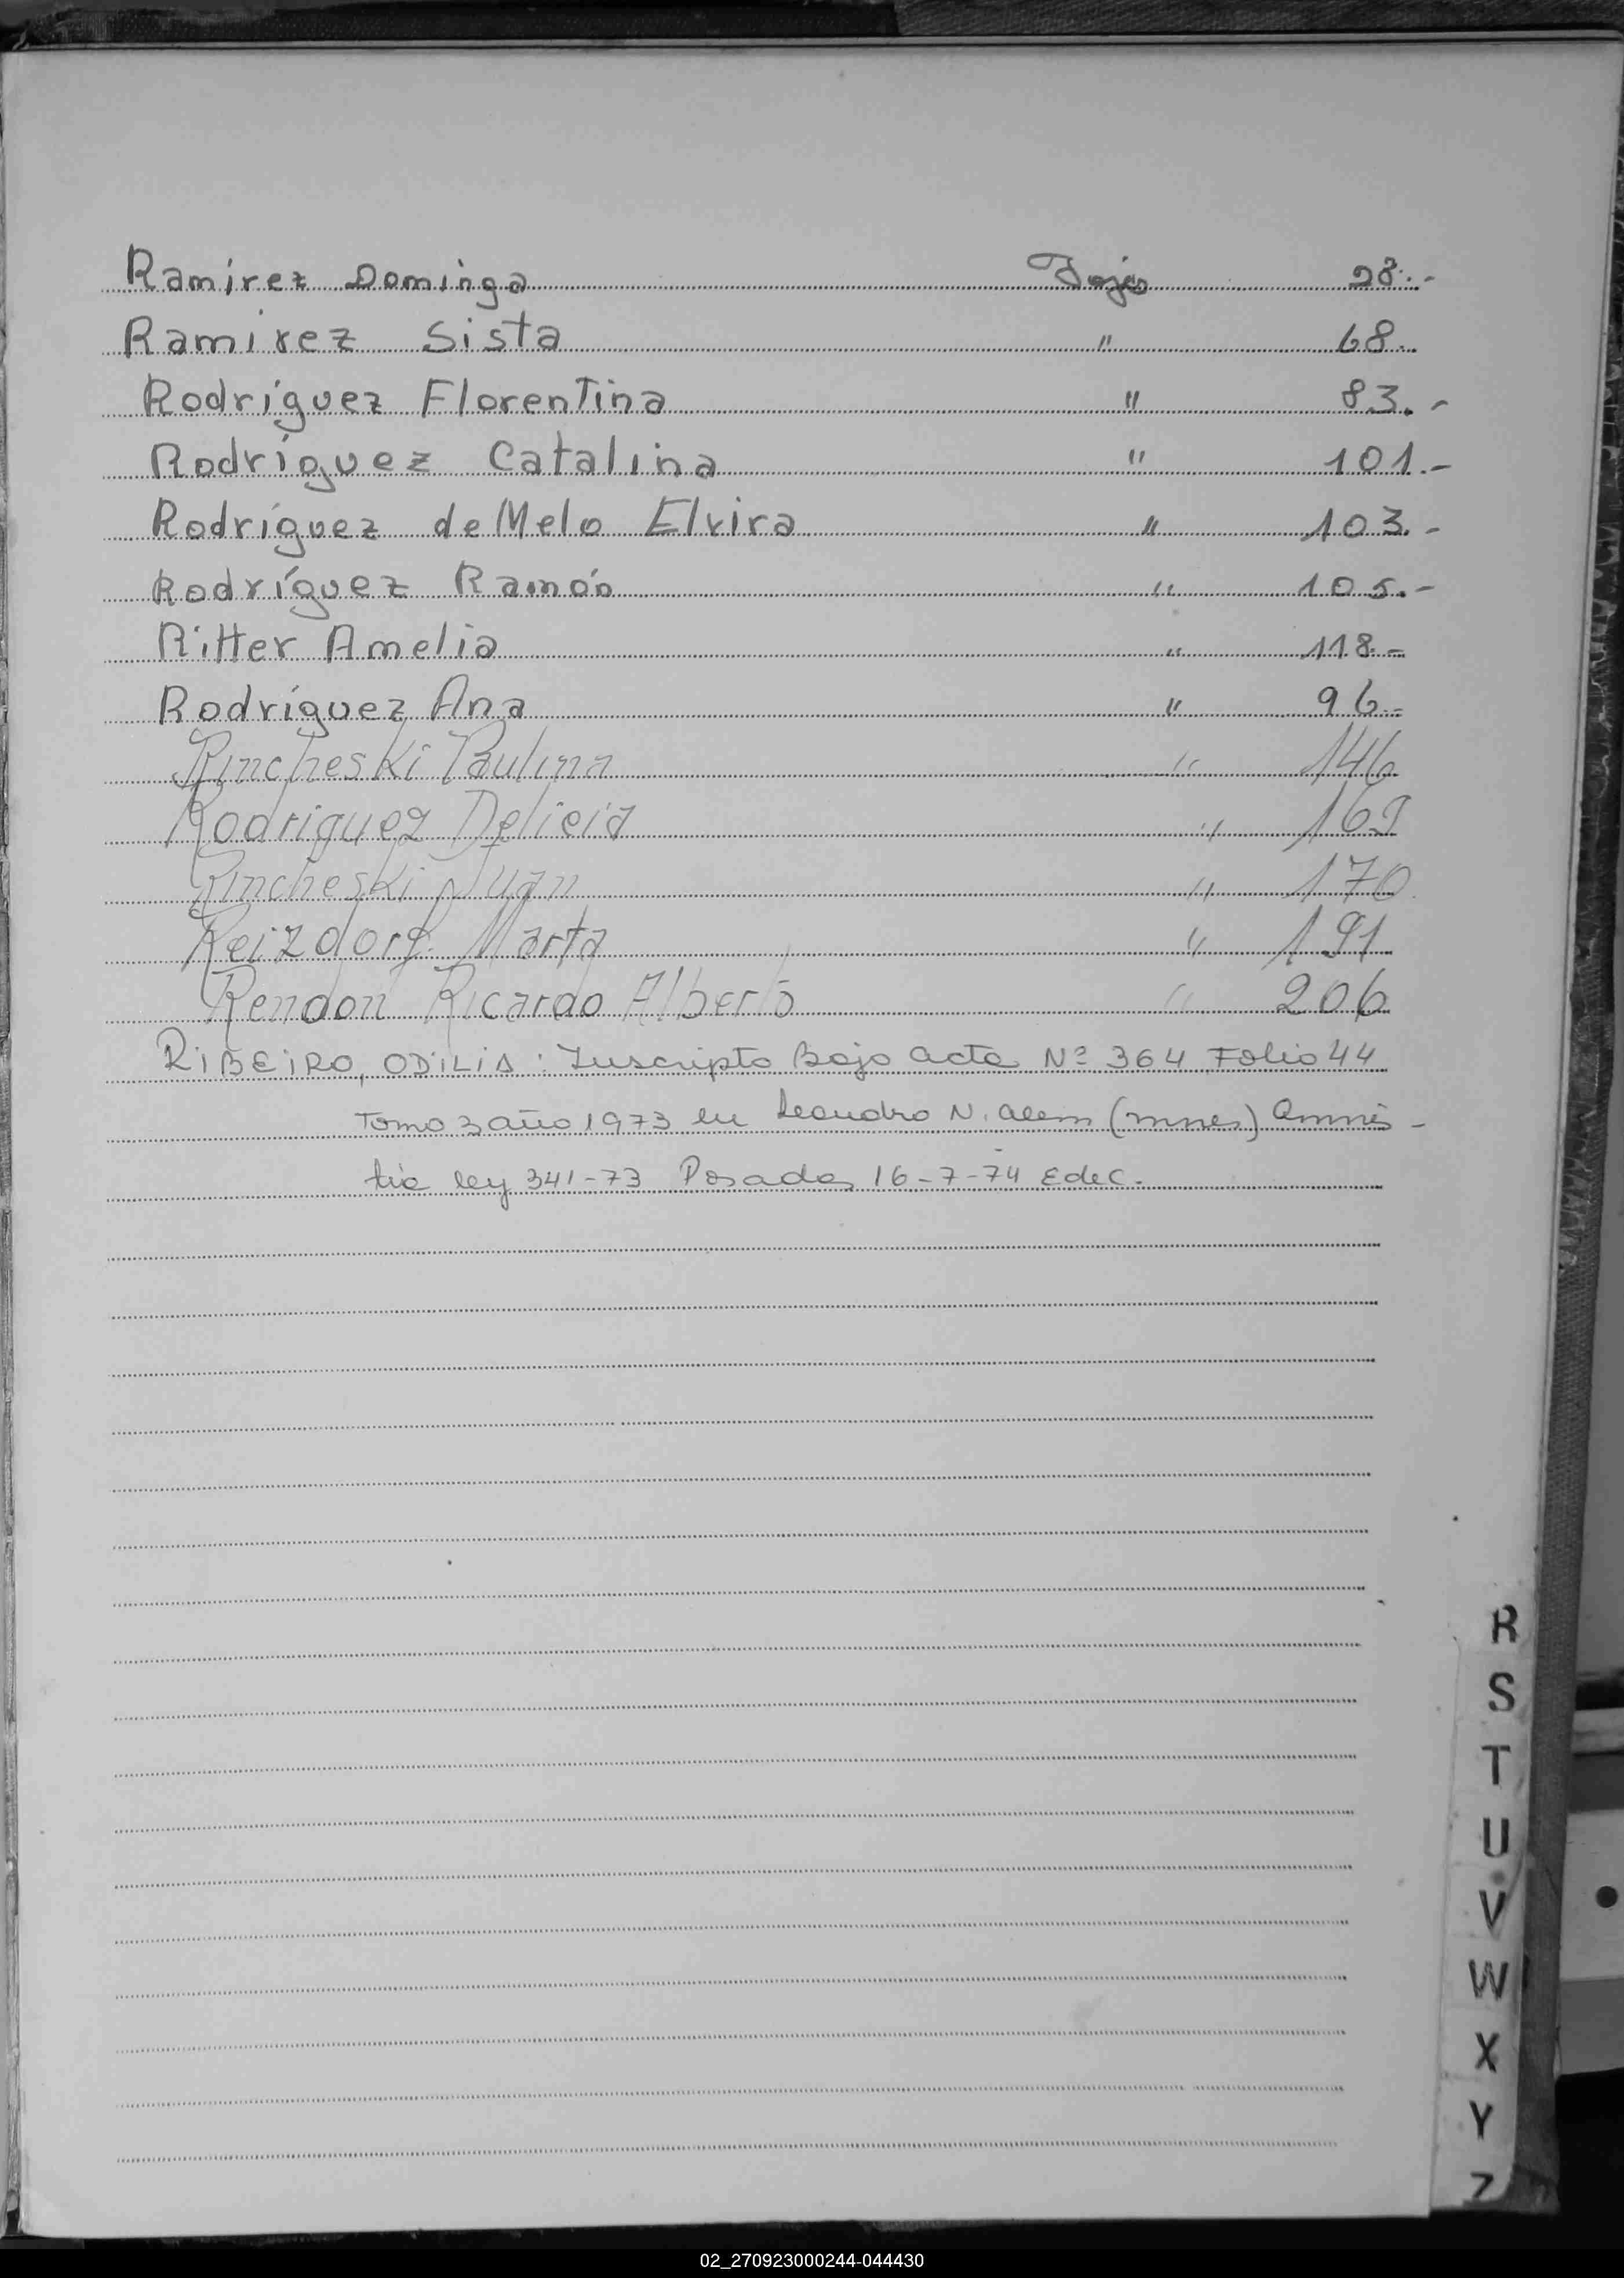 Ramirez Dominga Fojas 28.-
Ramirez Sista " 68.-
Rodríguez Florentina " 83.-
Rodríguez Catalina " 101.-
Rodríguez de Melo Elvira " 103.-
Rodríguez Ramón " 105.-
Ritter Amelia " 118.-
Rodríguez Ana " 96.-
Rincheski Paulina " 146
Rodriguez Delicia " 169
Rincheski Juan " 170
Reizdorf Marta " 191
Rendon Ricardo Alberto " 206
RIBEIRO, ODILIA: Inscripto Bajo acta Nº 364 Folio 44
Tomo 3 año 1973 en Leandro N. alem (mnes) Amnis-
tia ley 341-73 Posadas 16-7-74 Edec.-
R
S
T
U
V
W
X
Y
Z
02_270923000244-044430